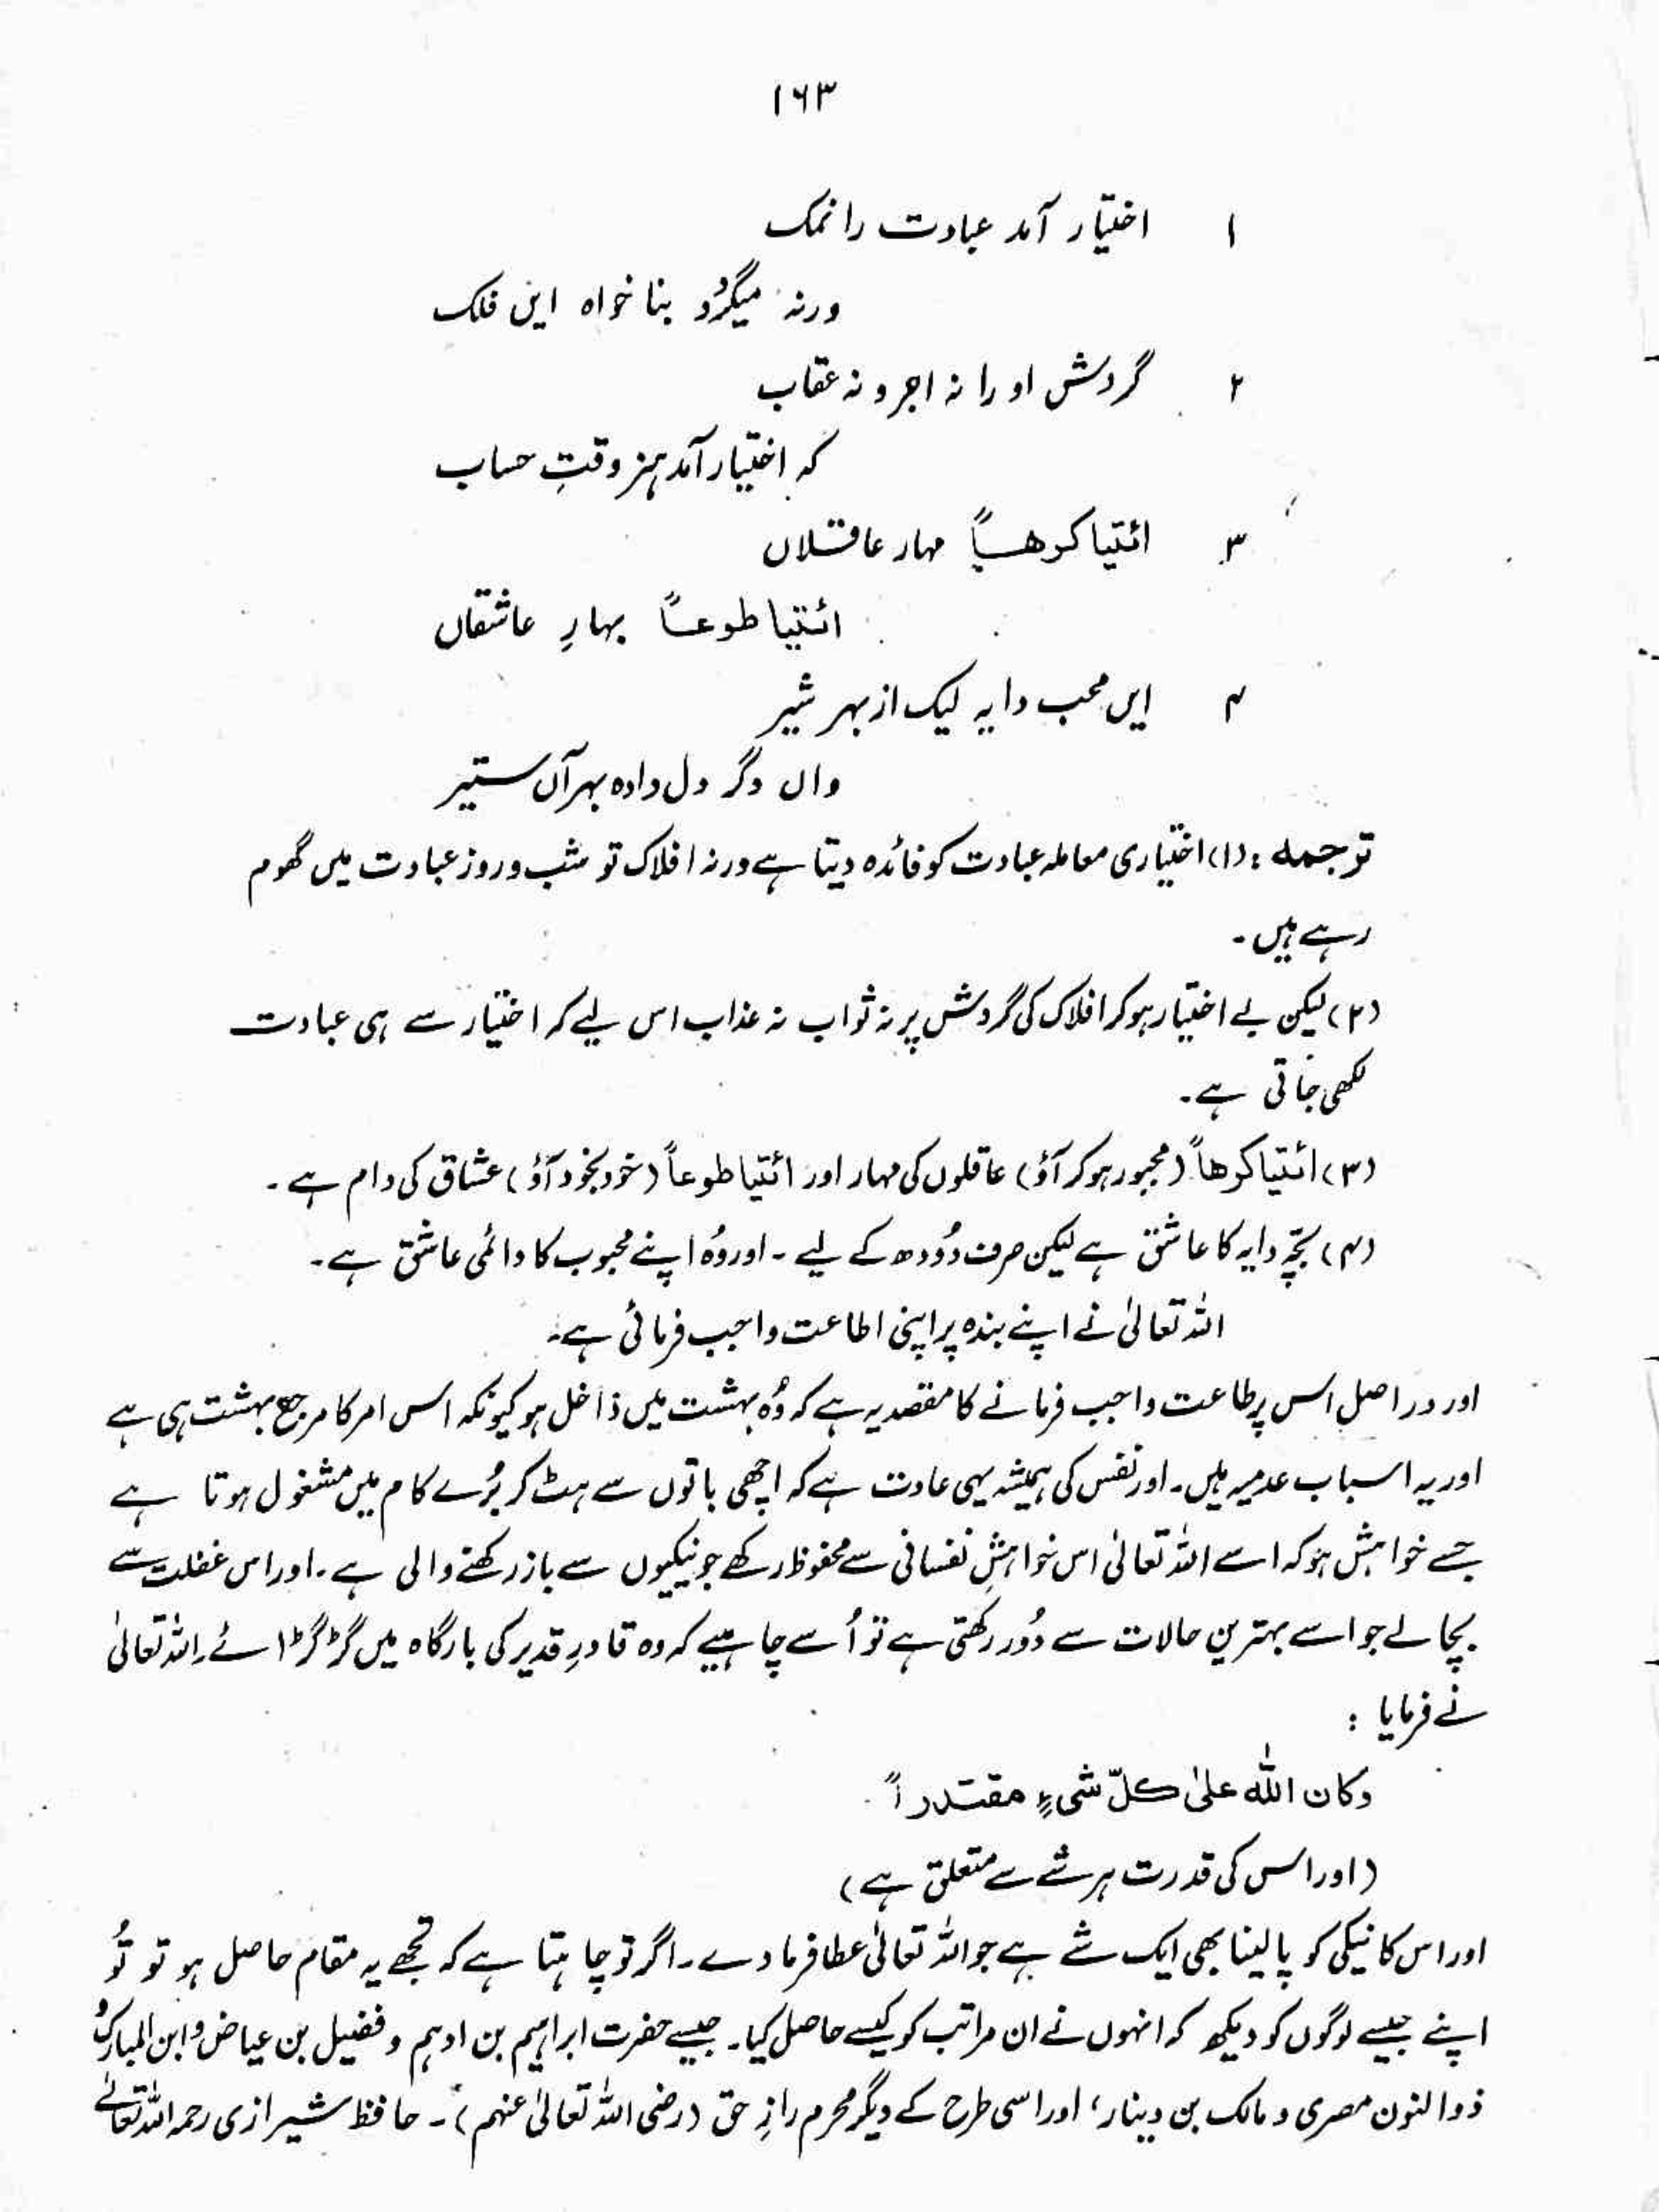 ۱۶۳
۱ اختیار آمد عبادت را نمک
ورنہ میگردد بنا خواہ ایں فلک
۲ گردش او را نہ اجر و نہ عقاب
کہ اختیار آمد ہنر وقتِ حساب
۳ ائتیا کرھاً مہار عاقلاں
ائتیا طوعاً بہارِ عاشقاں
۴ ایں محب دایہ لیک از بہر شیر
واں دگر دل دادہ بہر آں ستیر
ترجمہ : (۱) اختیاری معاملہ عبادت کو فائدہ دیتا ہے ورنہ افلاک تو شب و روز عبادت میں گھوم
رہے ہیں۔
(۲) لیکن بے اختیار ہو کر افلاک کی گردش پر نہ ثواب نہ عذاب اس لیے کہ اختیار سے ہی عبادت
لکھی جاتی ہے۔
(۳) ائتیا کرھاً (مجبور ہو کر آؤ) عاقلوں کی مہار اور ائتیا طوعاً (خود بخود آؤ) عشاق کی دام ہے۔
(۴) بچّہ دایہ کا عاشق ہے لیکن صرف دُودھ کے لیے ۔ اور وُہ اپنے محبوب کا دائمی عاشق ہے۔
اللہ تعالیٰ نے اپنے بندہ پر اپنی اطاعت واجب فرمائی ہے۔
اور در اصل اس پر طاعت واجب فرمانے کا مقصد یہ ہے کہ وُہ بہشت میں داخل ہو کیونکہ اس امر کا مرجع بہشت ہی ہے
اور یہ اسباب عدمیہ ہیں۔ اور نفس کی ہمیشہ یہی عادت ہے کہ اچھی باتوں سے ہٹ کر بُرے کام میں مشغول ہوتا ہے
جسے خواہش ہو کہ اسے اللہ تعالیٰ اس خواہشِ نفسانی سے محفوظ رکھے جو نیکیوں سے باز رکھنے والی ہے۔ اور اس غفلت سے
بچا لے جو اسے بہترین حالات سے دُور رکھتی ہے تو اُسے چاہیے کہ وہ قادرِ قدیر کی بارگاہ میں گڑگڑائے۔ اللہ تعالیٰ
نے فرمایا :
وکان اللّٰہ علیٰ کلّ شیءٍ مقتدراً۔
(اور اس کی قدرت ہر شے سے متعلق ہے)
اور اس کا نیکی کو پا لینا بھی ایک شے ہے جو اللہ تعالیٰ عطا فرما دے۔ اگر تو چاہتا ہے کہ تجھے یہ مقام حاصل ہو تو تُو
اپنے جیسے لوگوں کو دیکھ کہ انہوں نے ان مراتب کو کیسے حاصل کیا۔ جیسے حضرت ابراہیم بن ادہم و فضیل بن عیاض و ابن المبارک و
ذوالنون مصری و مالک بن دینار، اور اسی طرح کے دیگر محرم رازِ حق (رضی اللہ تعالیٰ عنہم)۔ حافظ شیرازی رحمہ اللہ تعالےٰ